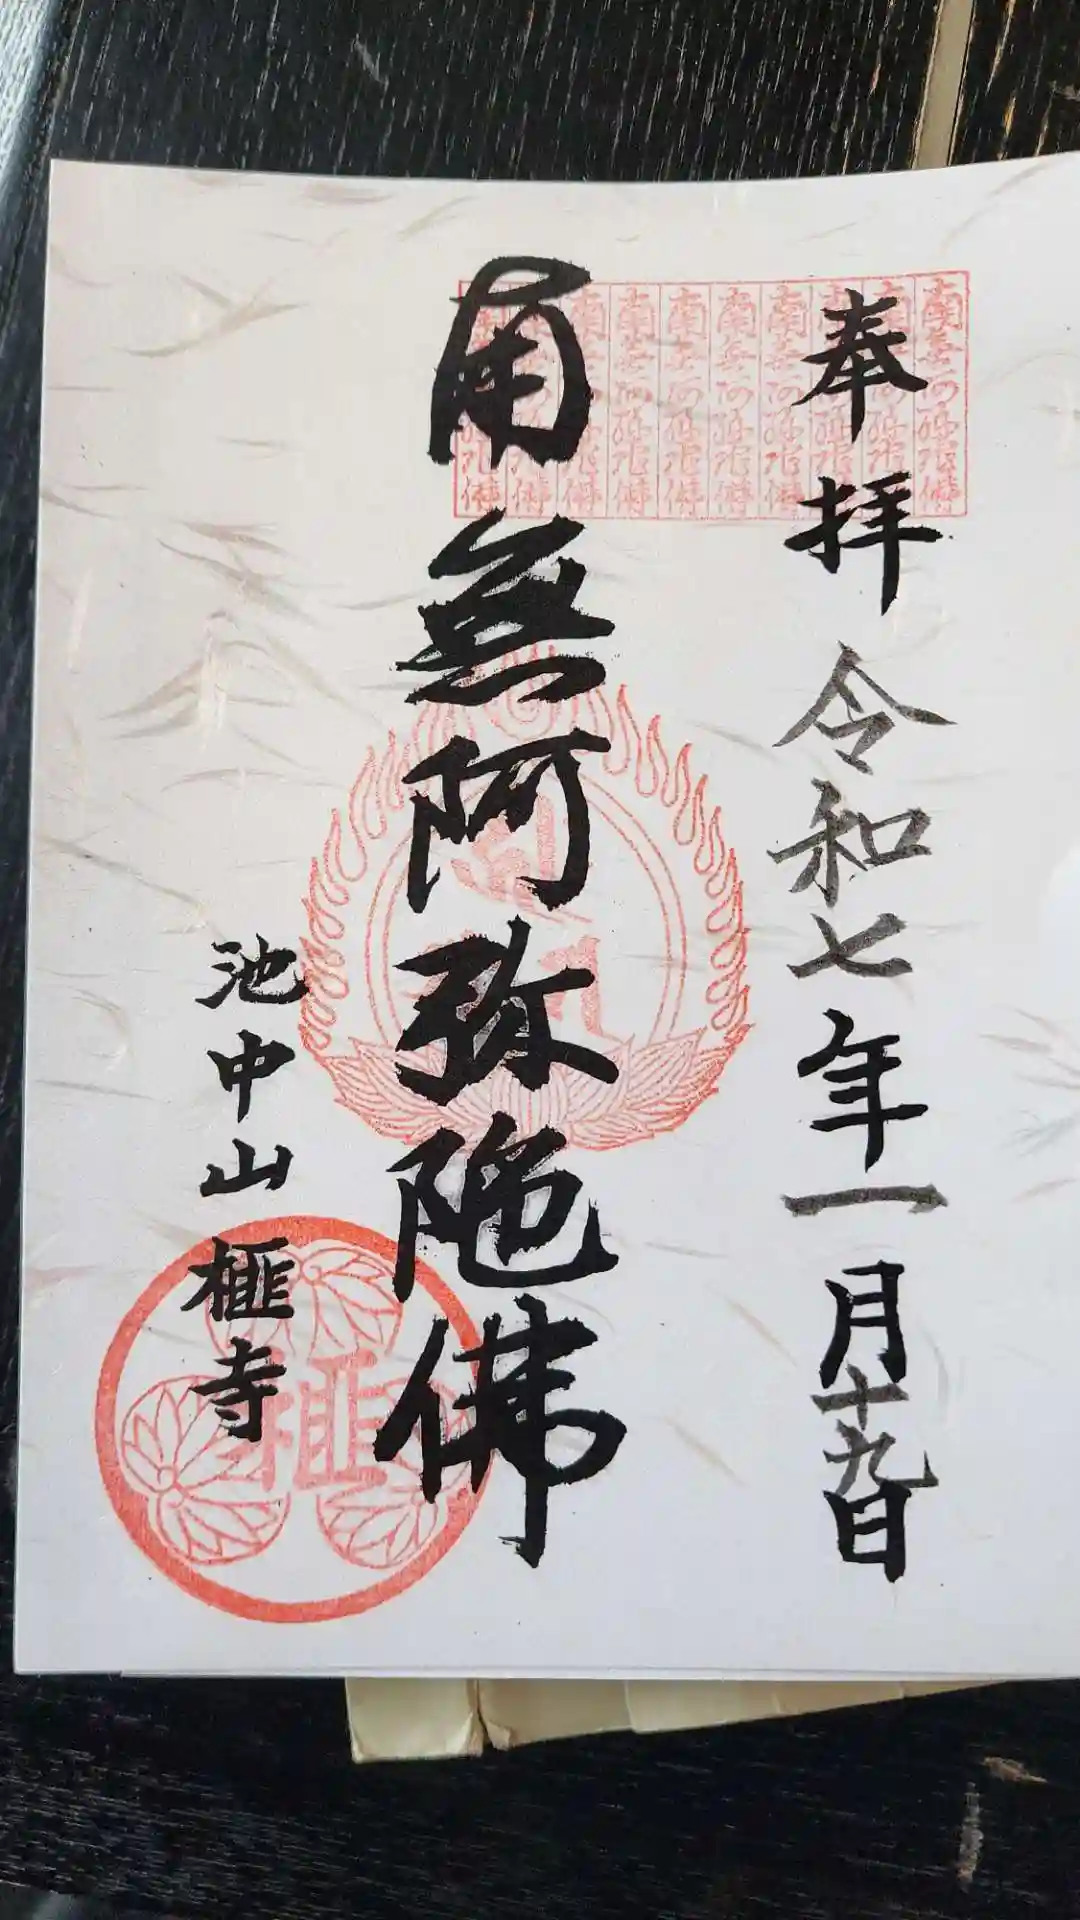 奉拝 令和七年一月十九日
南無阿弥陀佛
池中山 榧寺
南無阿弥陀佛
南無阿弥陀佛
南無阿弥陀佛
南無阿弥陀佛
南無阿弥陀佛
南無阿弥陀佛
南無阿弥陀佛
南無阿弥陀佛
南無阿弥陀佛
南無阿弥陀佛